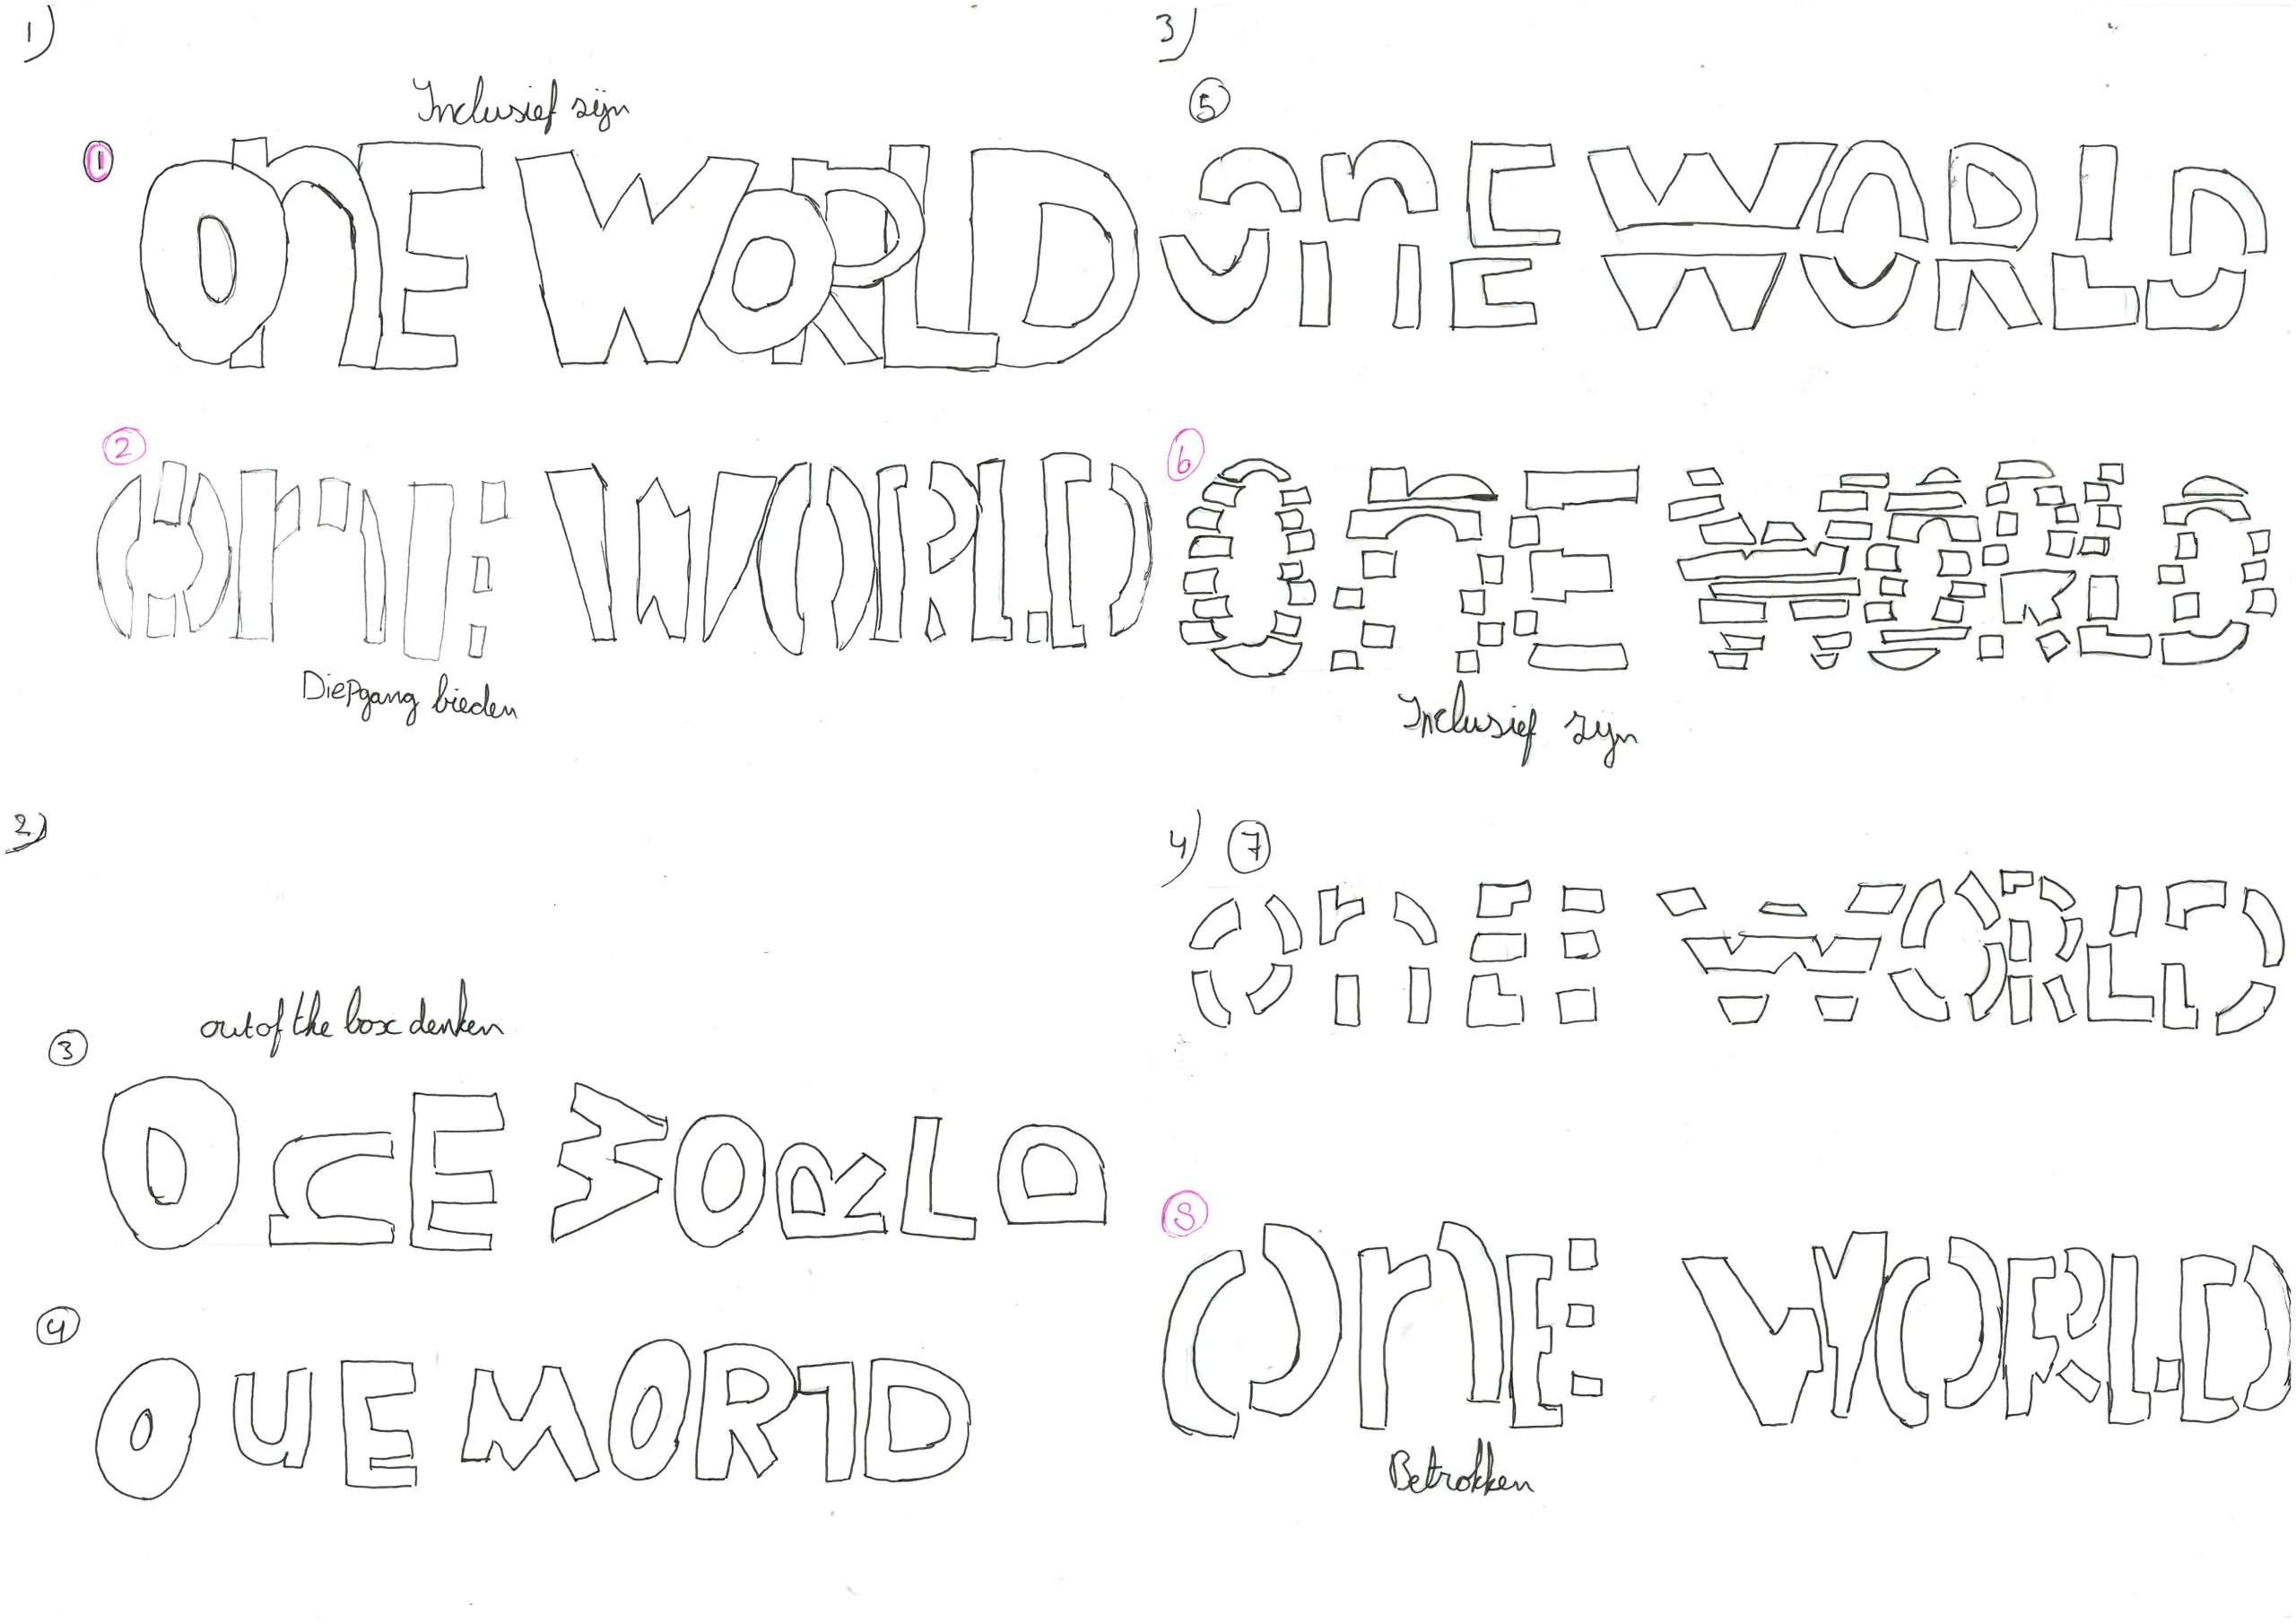 1)
Inclusief zijn
1
OnE WORLD
2
OnE WORLD
Diepgang bieden
2)
out of the box denken
3
OnE WORLD
4
OUE MORLD
3)
5
OnE WORLD
6
OnE WORLD
Inclusief zijn
4) 7
OnE WORLD
8
OnE WORLD
Betrokken